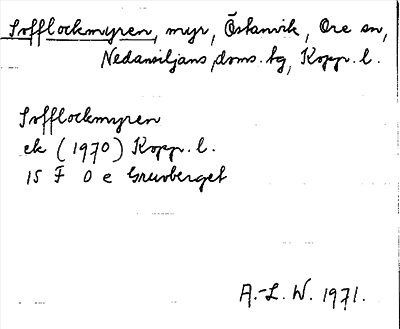 Sofflockmyren, myr, Östanvik, Ore sn,
Nedansiljans doms.tg, Kopp. l.
Sofflockmyren
ek (1970) Kopp. l.
15 F 0 e Gruvberget
A.-L. W. 1971.